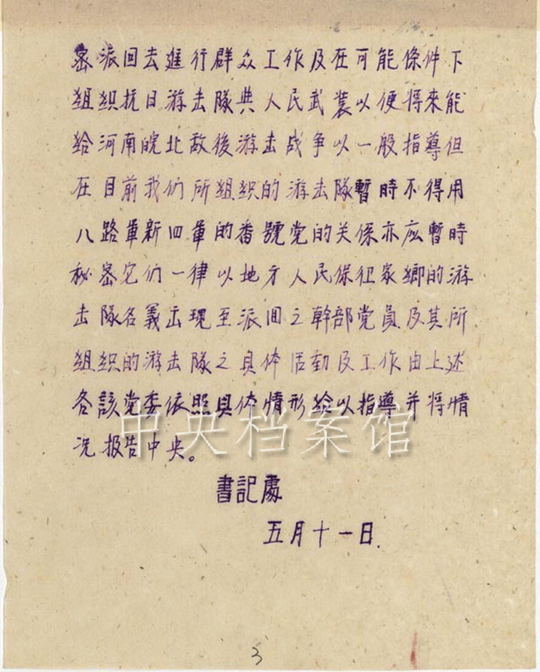 密派回去進行群众工作及在可能條件下
組织抗日游击隊與人民武装以便将來能
给河南皖北敌後游击战争以一般指導但
在目前我们所组织的游击隊暫時不得用
八路軍新四軍的番號党的关係亦应暫時
秘密它们一律以地方人民保衽家鄉的游
击隊名義出現至派回之幹部党员及其所
组织的游击隊之具体活動及工作由上述
各該党委依照具体情形给以指導并将情
况报告中央。
書記處
五月十一日.
3
中央档案馆